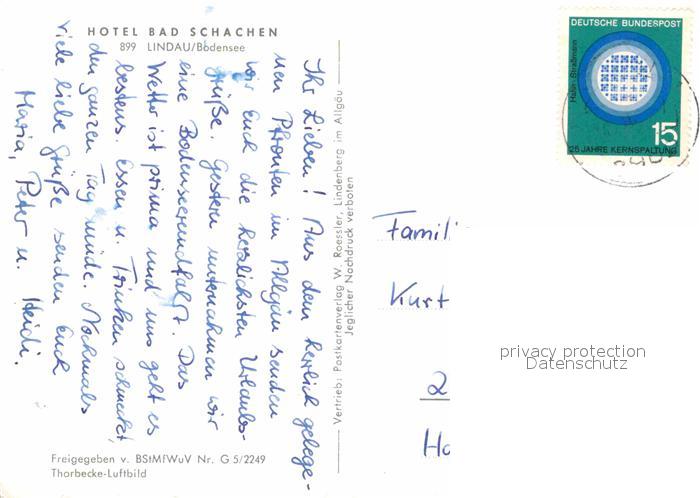 HOTEL BAD SCHACHEN
899 LINDAU/Bodensee
Ihr Lieben! Aus dem herrlich gelege-
nen Pfronten im Allgäu senden
wir Euch die herzlichsten Urlaubs-
grüße. Gestern unternahmen wir
eine Bodenseerundfahrt. Das
Wetter ist prima und uns geht es
bestens. Essen u. Trinken schmecket
den ganzen Tag munde. Nochmals
viele liebe Grüße senden Euch
Maria, Peter u. Heidi.
Freigegeben v. BStMfWuV Nr. G 5/2249
Thorbecke-Luftbild
Vertrieb: Postkartenverlag W. Roessler, Lindenberg im Allgäu
Jeglicher Nachdruck verboten
DEUTSCHE BUNDESPOST
Hahn-Straßmann
15
25 JAHRE KERNSPALTUNG
Famili
Kurt
2
Ho
privacy protection
Datenschutz